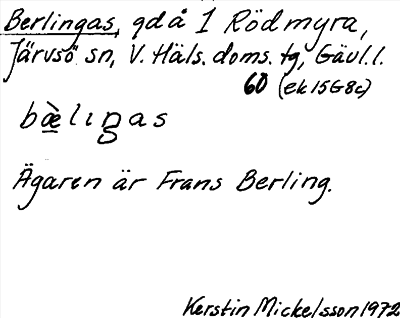 Berlingas, gdå 1 Rödmyra,
Järvsö sn, V. Häls. doms. tg, Gävl. l.
60 (ek 15G8c)
bæ̀lıŋas
Ägaren är Frans Berling.
Kerstin Mickelsson 1972